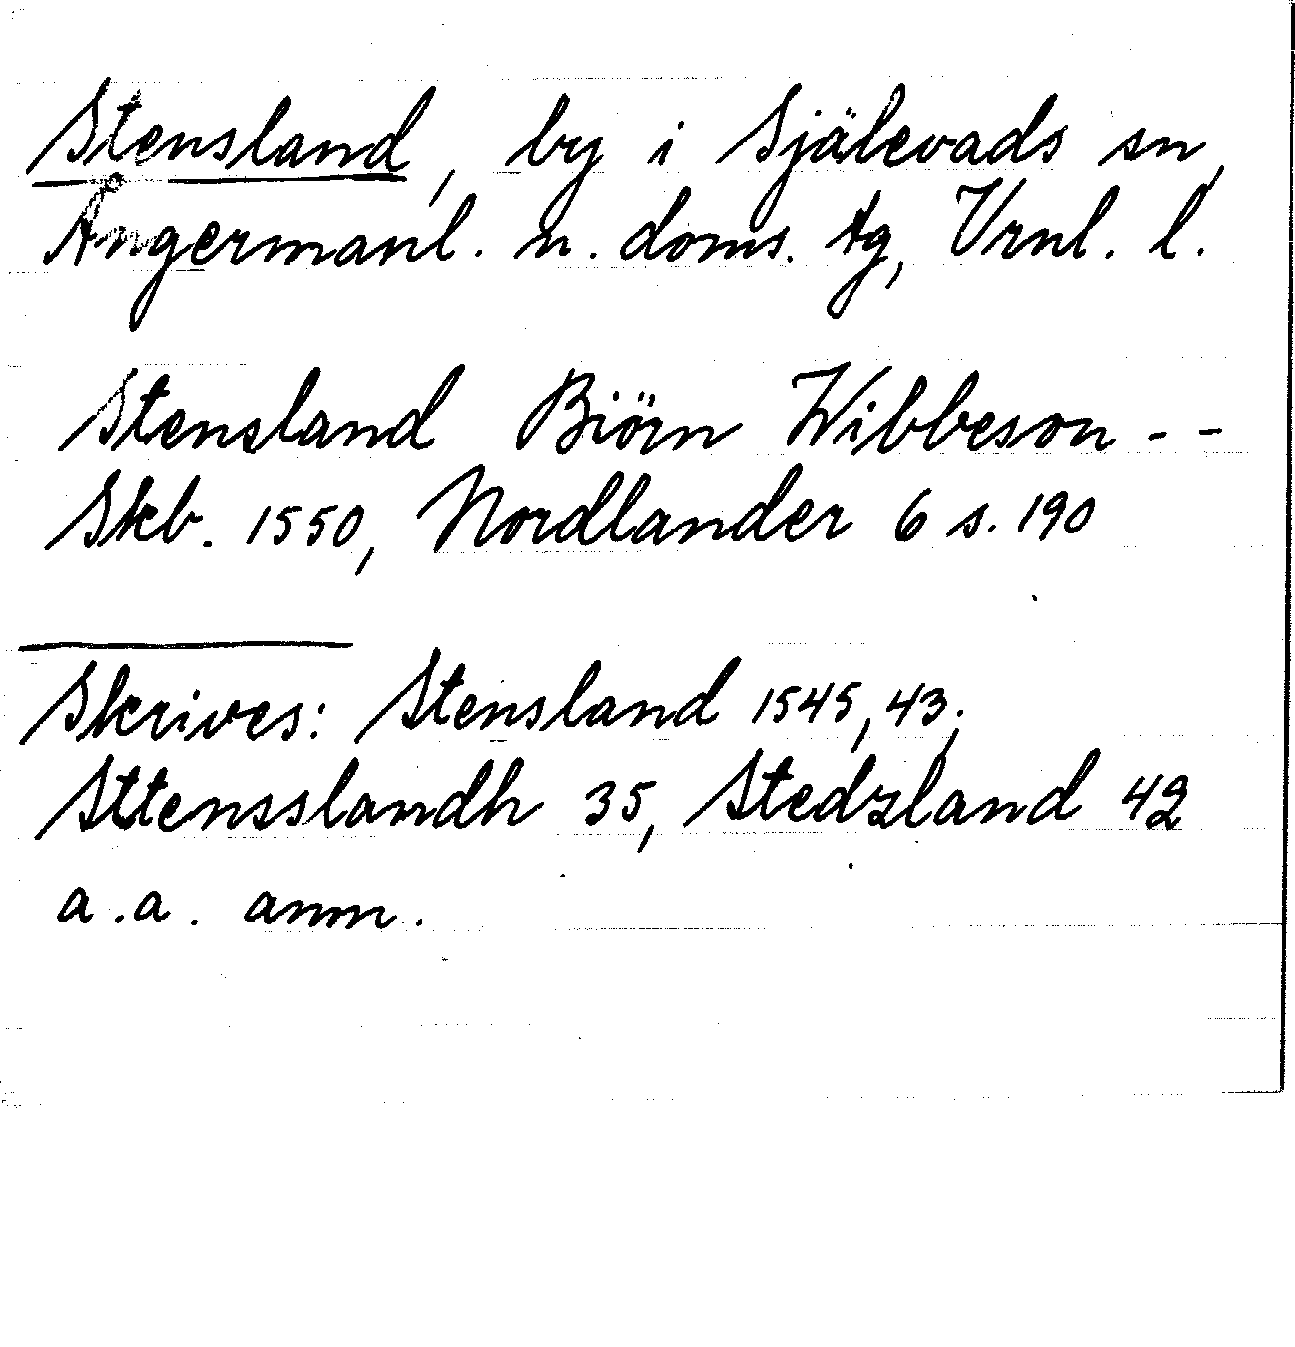 Stensland, by i Själevads sn,
Ångermanl. n. doms. tg, Vrnl. l.
Stensland Biörn Wibbeson - -
Skb. 1550, Nordlander 6 s. 190
Skrives: Stensland 1545, 43;
Sttensslandh 35, Stedzland 42
a.a. anm.